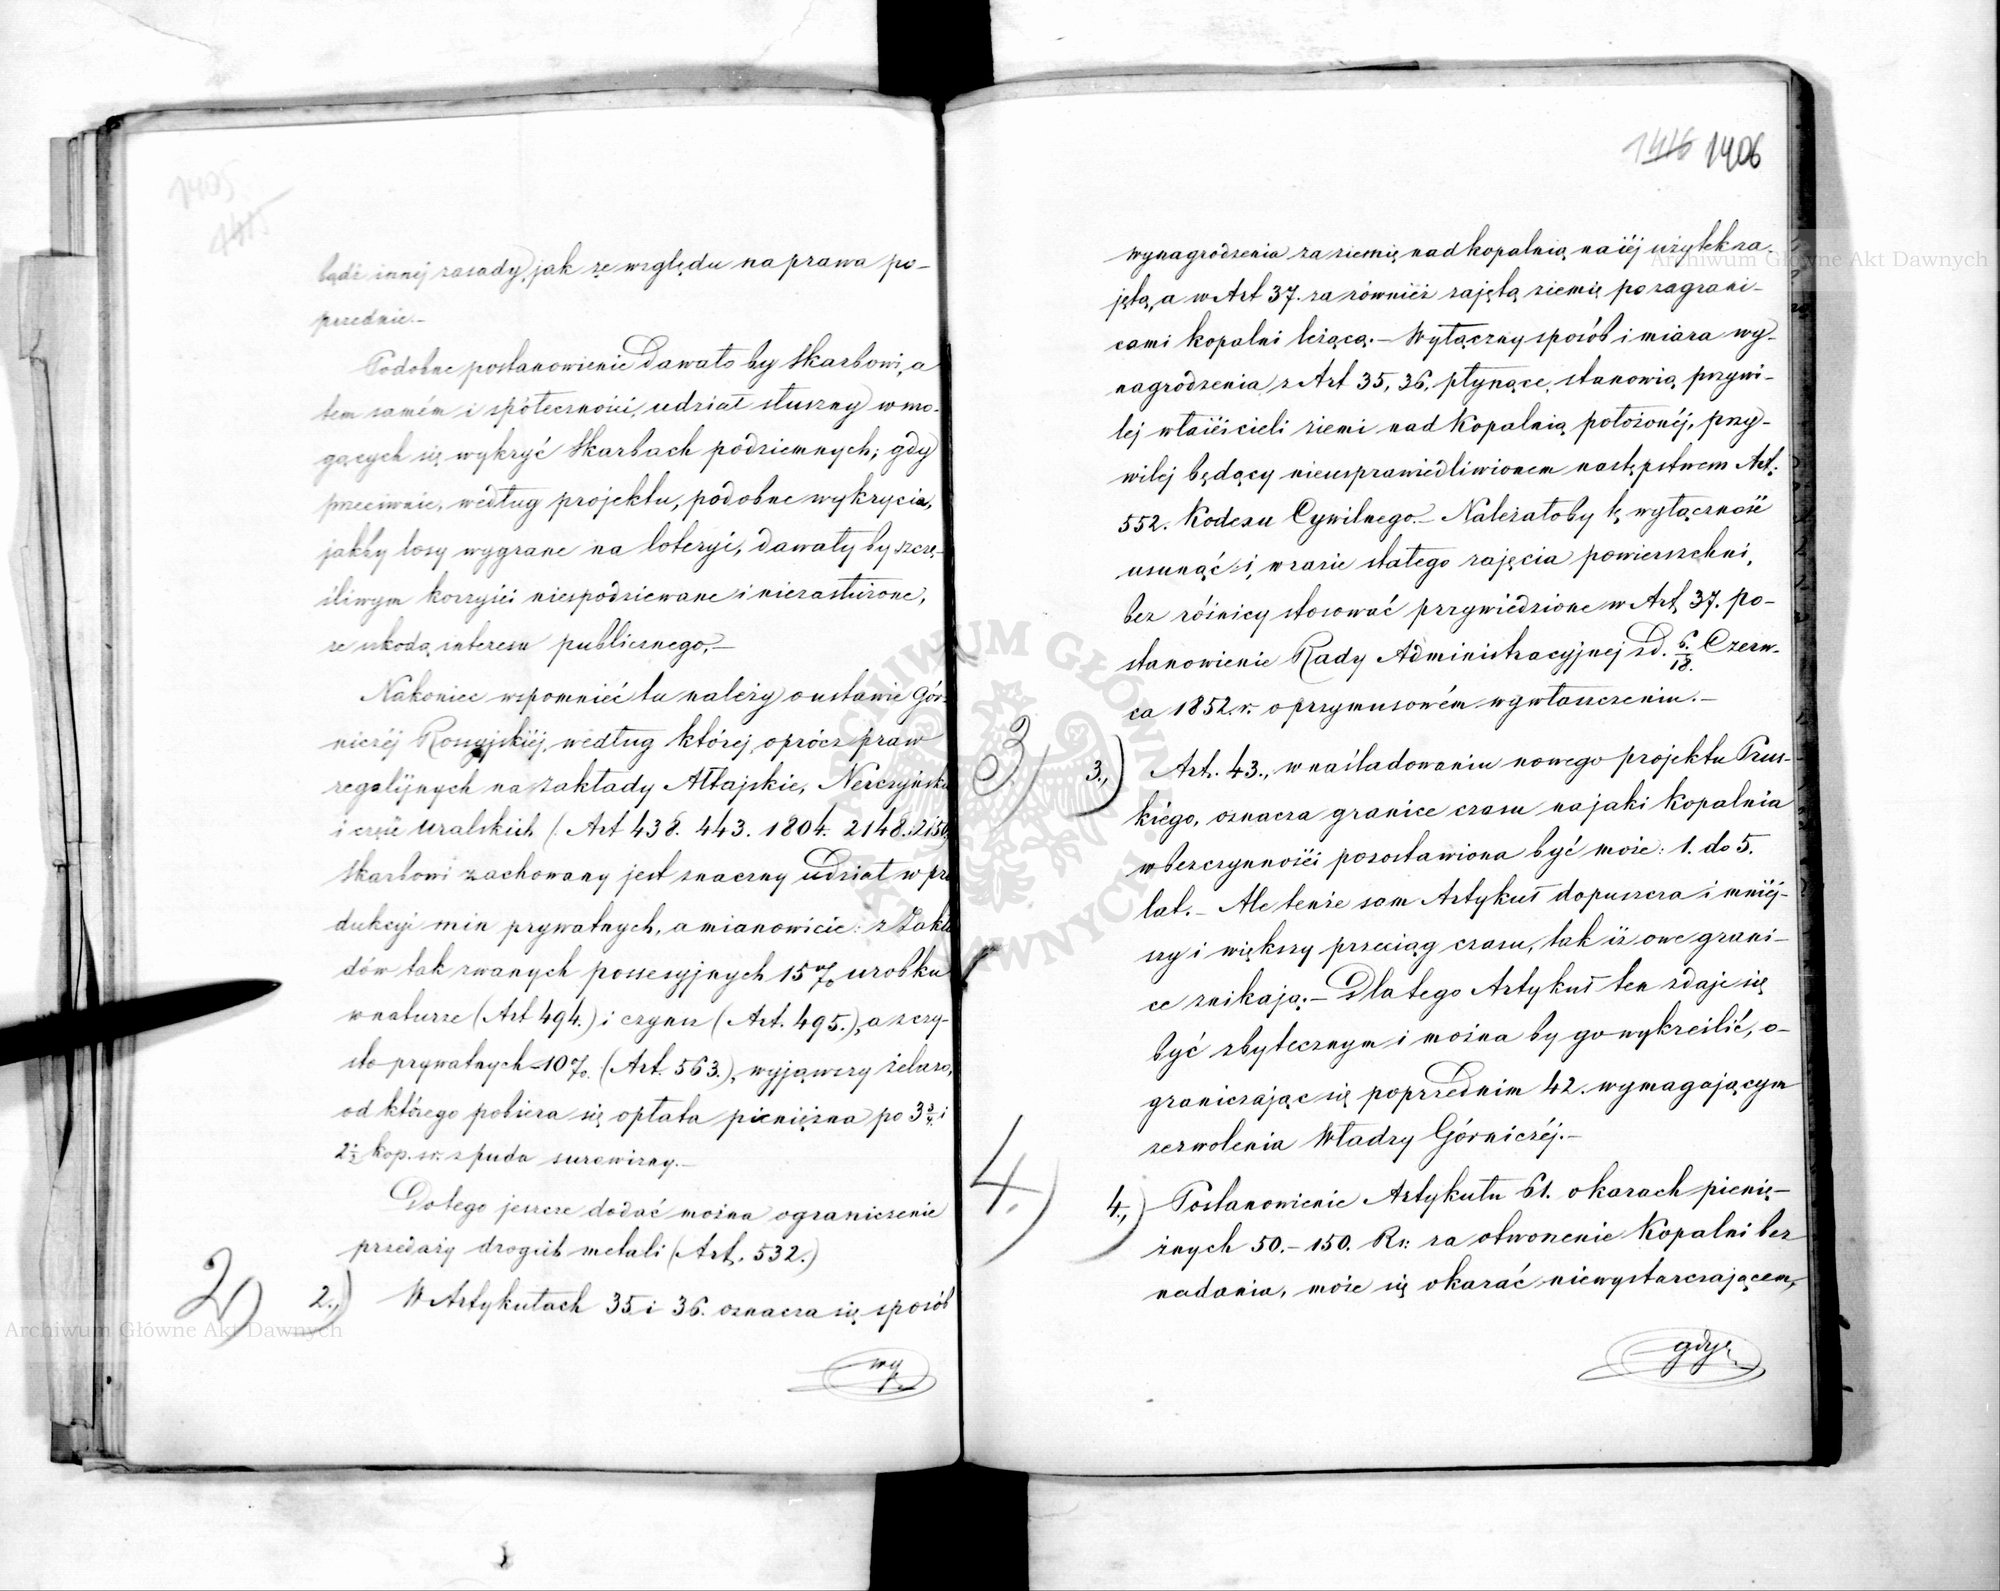 1405
1415
bądź innéj zasady, jak ze względu na prawa po-
przednie.-
Podobne postanowienie dawało by Skarbowi, a
tem samém i społeczności, udział słuszny w mo-
gących się wykryć Skarbach podziemnych; gdy
przeciwnie, według projektu, podobne wykrycia,
jakby losy wygrane na loteryi, dawały by szczę-
śliwym korzyści niespodziewane i niezasłużone,
ze szkodą interesu publicznego.-
Nakoniec wspomnieć tu należy o ustawie Gór-
niczéj Rossyjskiéj, według któréj, oprócz praw
regalijnych na zakłady Ałtajskie, Nerczyńskie
i część Uralskich (Art 438. 443. 1804. 2148. 2150)
Skarbowi zachowany jest znaczny udział w pro
dukcyi min prywatnych, a mianowicie: z Zakła
dów tak zwanych possesyjnych 15% urobku
w naturze (Art 494.) i czynsz (Art. 495.), a z czy-
sto prywatnych 10%. (Art. 563.), wyjąwszy żelazo,
od którego pobiera się opłata pieniężna po 3 3/4 i
2 1/2 kop. sr. z puda surowizny.-
Do tego jeszcze dodać można ograniczenie
przedaży drogich metali (Art. 532.)
2) 2.,) W Artykułach 35 i 36. oznacza się sposób
wy
1416 1406
wynagrodzenia za ziemię nad kopalnią na iéj użytek za-
jętą, a w Art 37. za równiéż zajętą ziemię po za grani-
cami kopalni leżącą.- Wyłączny sposób i miara wy-
nagrodzenia z Art 35, 36, płynące, stanowią przywi-
lej właścicieli ziemi nad Kopalnią położonéj, przy-
wilej będący nieusprawiedliwionem następstwem Art.
552. Kodexu Cywilnego.- Należałoby tę wyłączność
usunąć i, w razie stałego zajęcia powierzchni,
bez różnicy stosować przywiedzione w Art 37. po-
stanowienie Rady Administracyjnej z d. 6/18. Czerw-
ca 1852. r. o przymusowém wywłaszczeniu.-
3) 3.,) Art. 43., w naśladowaniu nowego projektu Prus-
kiego, oznacza granice czasu na jaki Kopalnia
w bezczynności pozostawiona być może: 1. do 5.
lat.- Ale tenże sam Artykuł dopuszcza i mniéj-
szy i większy przeciąg czasu, tak iż owe grani-
ce znikają.- Dla tego Artykuł ten zdaje się
być zbytecznym i można by go wykreślić, o-
graniczając się poprzednim 42. wymagającym
zezwolenia Władzy Górniczéj.-
4.) 4.,) Postanowienie Artykułu 61. o karach pienię-
żnych 50.- 150. Rs. za otworzenie Kopalni bez
nadania, może się okazać niewystarczającem,
gdyż
Archiwum Główne Akt Dawnych
Archiwum Główne Akt Dawnych
ARCHIWUM GŁÓWNE AKT DAWNYCH